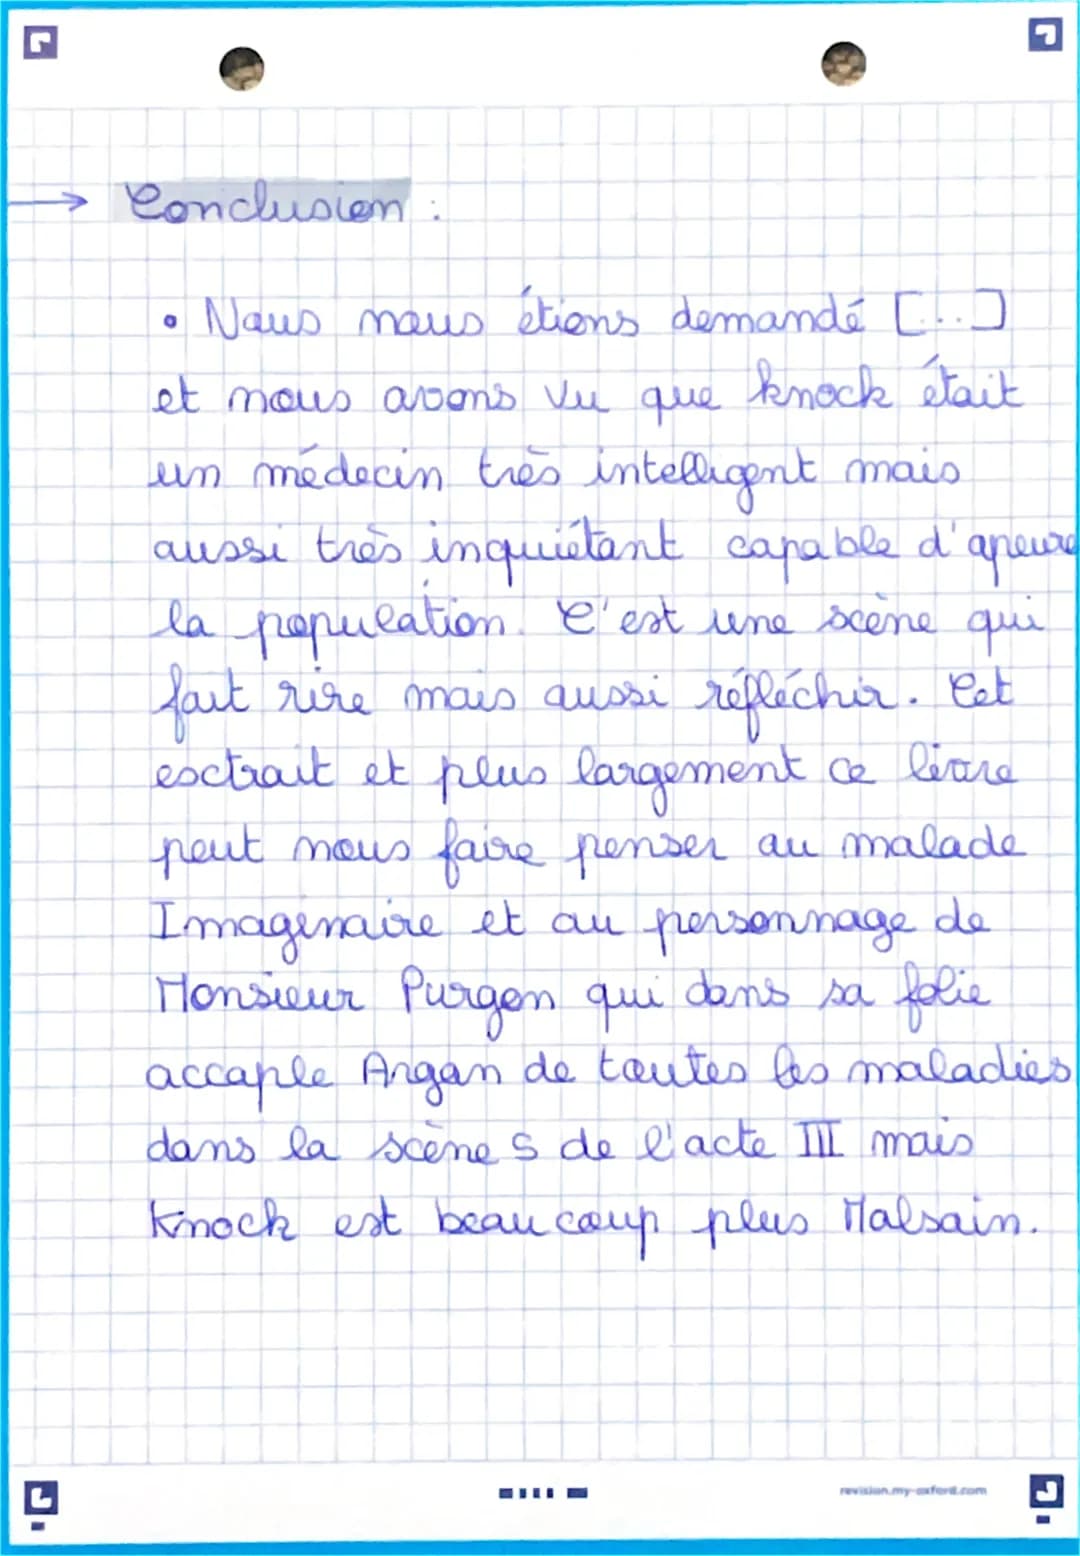 → Conclusion :
• Nous nous étions demandé [...]
et nous avons vu que knock était
un médecin très intelligent mais
aussi très inquiétant capable d'apeure
la population. C'est une scène qui
fait rire mais aussi réfléchir. Cet
esctrait et plus largement ce livre
peut nous faire penser au malade
Imaginaire et au personnage de
Monsieur Purgon qui dans sa folie
accaple Argan de toutes les maladies
dans la scène 5 de l'acte III mais
Knock est beaucoup plus Malsain.
revision.my-oxford.com